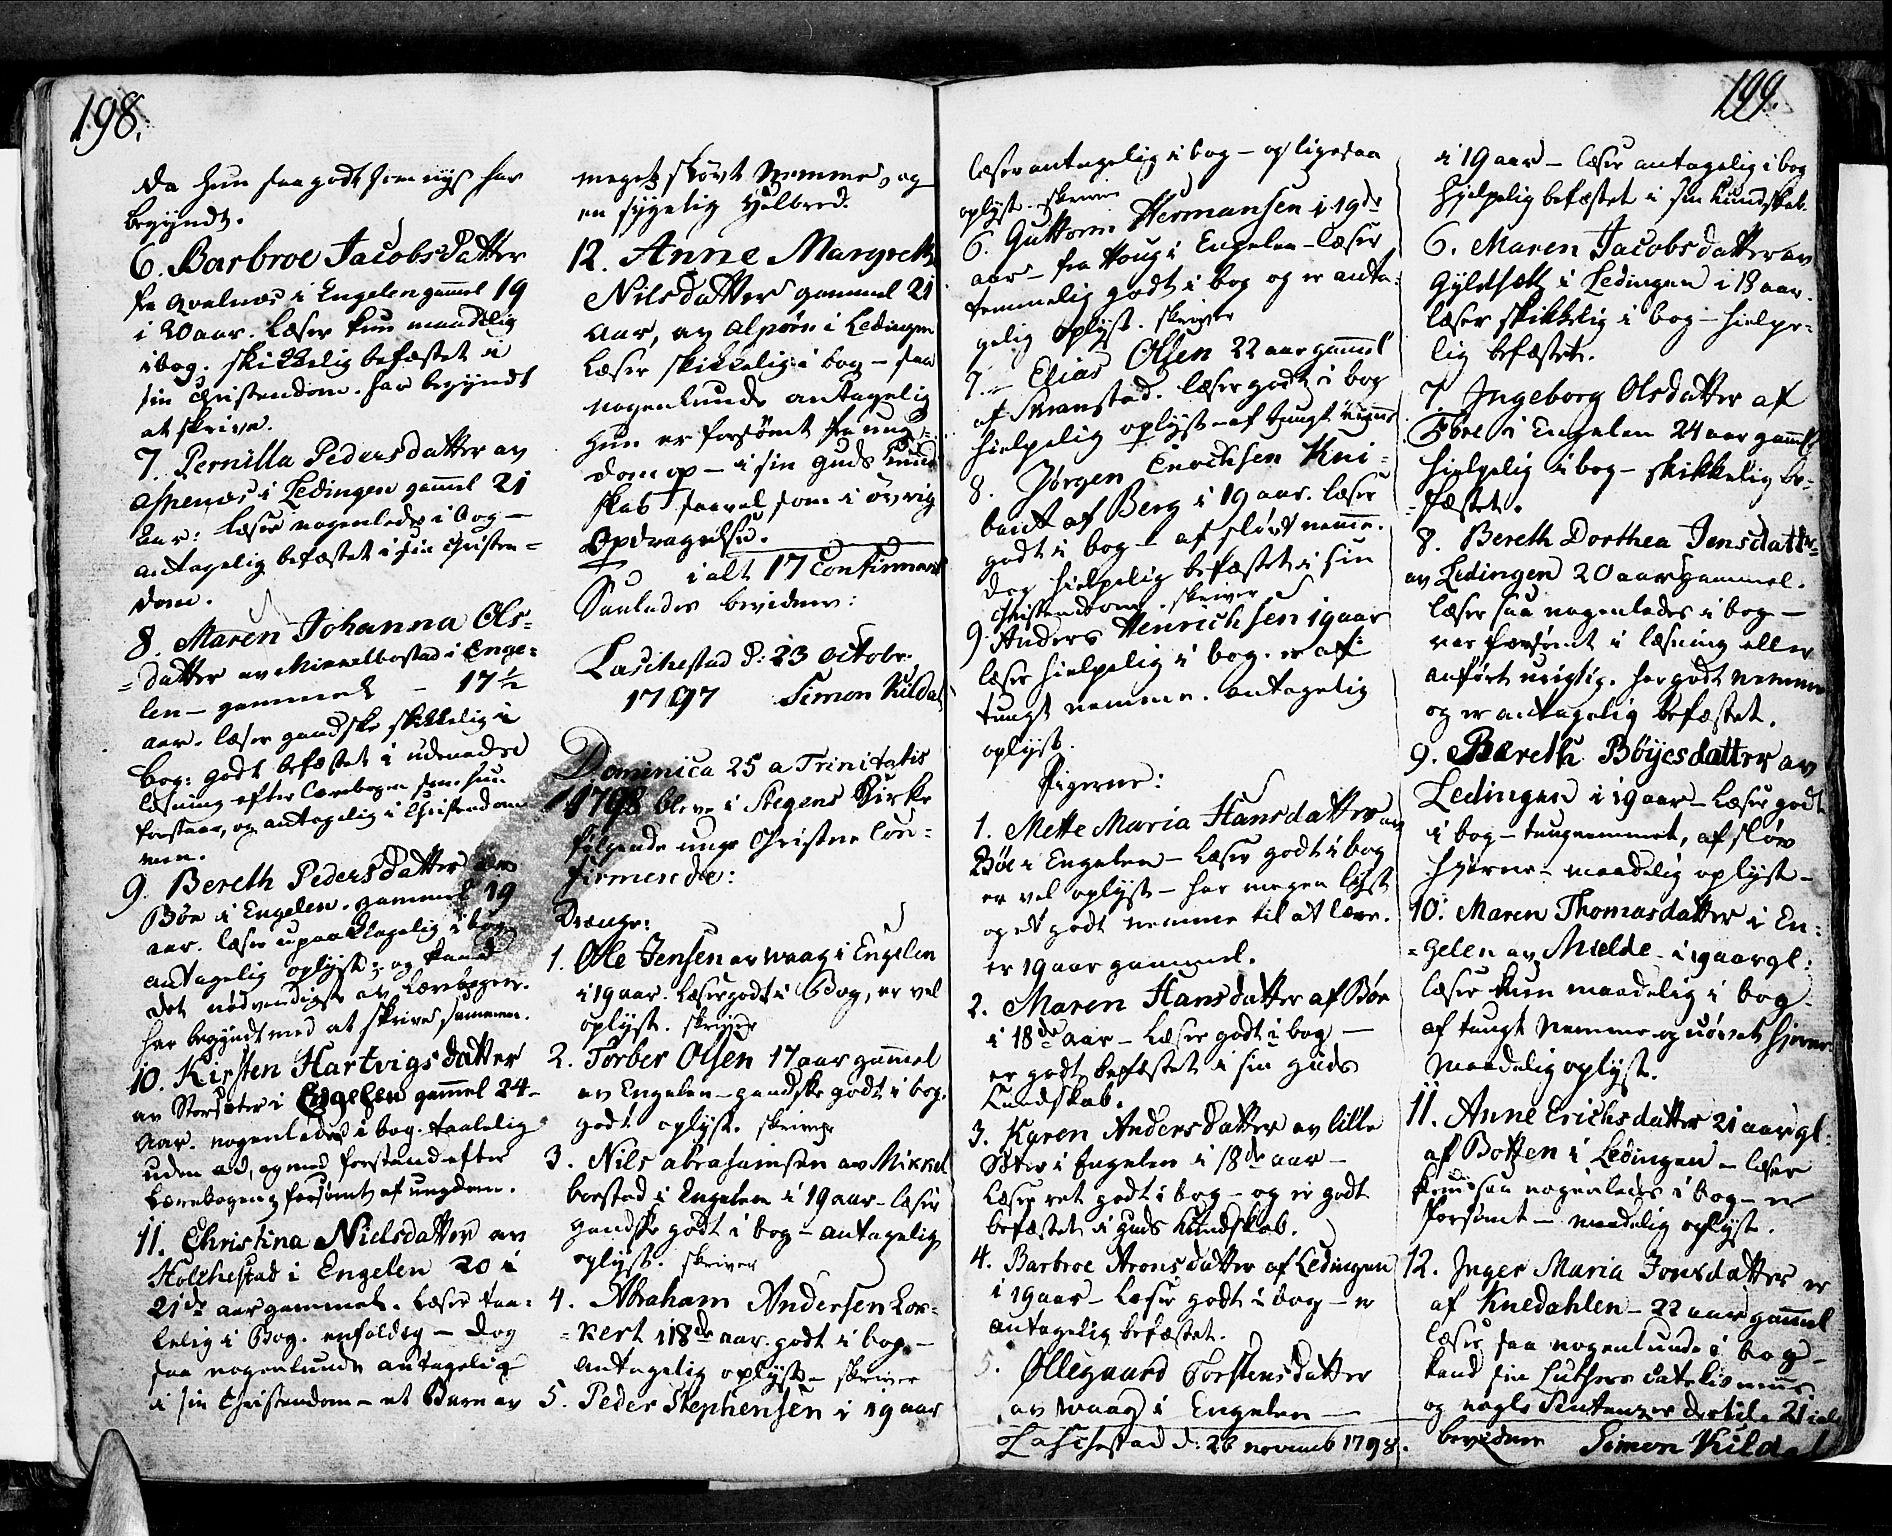 198.
da hun saa godt som nys har
begyndt.
6. Barbroe Jacobsdatter
fra qvalnæs i Engelen gammel 19
i 20 aar. læser kun maadelig
i bog. skikkelig befæstet i
sin Christendom. har begyndt
at skrive.
7. Pernilla Pedersdatter av
Aspenæs i Lødingen gammel 21
aar: læser nogenledes i bog —
antagelig befæstet i sin Christen=
dom.
8. Maren Johanna Ols=
=datter av Mikkelbostad i Enge=
len — gammel — 17½
aar. læser gandske skikkelig i
bog: godt befæstet i udenads
læsning efter Lærebogen som hun
forstaar, og antagelig i Christendom
men.
9. Bereth Pedersdatter av
Böe i Engelen. gammel 19
aar. læser upaaklagelig i bog
antagelig oplyst; og kand
det nødvendigste av Lærebogen.
har begyndt med at skrive sammen.
10. Kirsten Hartvigsdatter
av Storsæter i Engelen gammel 24
aar. nogenledes i bog. taalelig
uden ad, og med forstand efter
Lærebogen; forsømt af ungdom.
11. Christina Nielsdatter av
Kolchestad i Engelen 20 i
21de aar gammel. læser taa=
lelig i Bog. enfoldig — dog
saa nogenlunde antagelig
i sin Christendom — et Barn av
meget sløvt Nemme, og
en sygelig Helbred.
12. Anne Margreth
Nilsdatter gammel 21
aar, av alpøen i Lødingen
læser skikkelig i bog — saa
nogenlunde antagelig
hun er forsømt fra ung=
dom op — i sin guds kund
skab saavel som i øvrig
Opdragelse.
i alt 17 Confirmant
Saaledes bevidner:
Laschestad d: 23 octobr.
1797 Simon Kildal
Dominica 25 a Trinitatis
1798 bleve i Stegens Kirke
følgende unge Christne Con=
firmerede:
Drænge:
1. Ole Jensen av waag i Engelen
i 19 aar. læser godt i Bog, er vel
oplyst. skriver
2. Torber Olsen 17 aar gammel
av Engelen — gandske godt i bog.
godt oplyst. skriver
3. Nils abrahamsen av Mikkel
borstad i Engelen i 19 aar — læser
gandske godt i bog — antagelig
oplyst. skriver
4. Abraham Andersen Lor=
=kert i 18de aar. godt i bog —
antagelig oplyst — skriver
5. Peder Stephensen i 19 aar
199.
læser antagelig i bog — og ligesaa
oplyst. skriver
6. Guttorm Hermansen i 19de
aar — fra Houg i Engelen — læser
temmelig godt i bog og er anta=
gelig oplyst. skriver
7. — Elias Olsen 22 aar gammel
af Skranstad. læser godt i bog
hielpelig oplyst — af tungt nemme
8. Jørgen Enochsen Kni=
bandt af Berg i 19 aar. læser
godt i bog — af sløvt nemme.
dog hielpelig befæstet i sin
Christendom. skriver
9. Anders Henrichsen 19 aar
læser hielpelig i bog. er af
tungt nemme. antagelig
oplyst.
Pigerne:
1. Mette Maria Hansdatter av
Böe i Engelen — læser godt i bog
er vel oplyst — har megen lyst
og et godt nemme til at lære.
er 19 aar gammel.
2. Maren Hansdatter af Böe
i 18de aar — læser godt i bog —
er godt befæstet i sin guds
kundskab.
3. Karen Andersdatter av lille
Sæter i Engelen i 18de aar —
læser ret godt i bog — og er godt
befæstet i guds kundskab.
4. Barbroe Aronsdatter af Lødingen
i 19 aar — læser godt i bog — er
antagelig befæstet.
5. Ollegaard Torstensdatter
av waag i Engelen —
Laschestad d: 26 novemb 1798.
i 19 aar — læser antagelig i bog
hielpelig befæstet i sin kundskab.
6. Maren Jacobsdatter av
Gyldsæth i Lødingen i 19 aar.
læser skikkelig i bog — hielpe=
lig befæstet.
7 Ingeborg Olsdatter af
Före i Engelen 24 aar gammel
hielpelig i bog — skikkelig be=
=fæstet.
8. Bereth Dorthea Jensdatter
av Lødingen 20 aar gammel.
læser saa nogenledes i bog —
var forsømt i læsning eller
anført urigtig. har godt nemme
og er antagelig befæstet.
9. Bereth Böyesdatter av
Lødingen i 19 aar — læser godt
i bog — tungnemmet, af sløv
hjerne — maadelig oplyst —
10. Maren Thomasdatter i En=
=gelen av Mielde — i 19 aar gl:
læser kun maadelig i bog —
af tungt Nemme og uövet hjerne
maadelig oplyst.
11. Anne Erichsdatter 21 aar gl.
af Botten i Lødingen — læser
kun saa nogenledes i bog — er
forsømt — maadelig oplyst.
12. Inger Maria Jonsdatter er
af Knedahlen — 22 aar gammel
læser saa nogenlunde i bog —
kand sin Luthers Catechismus
og nogle Sentenzer dertil. 21 ialt
bevidner Simon Kildal